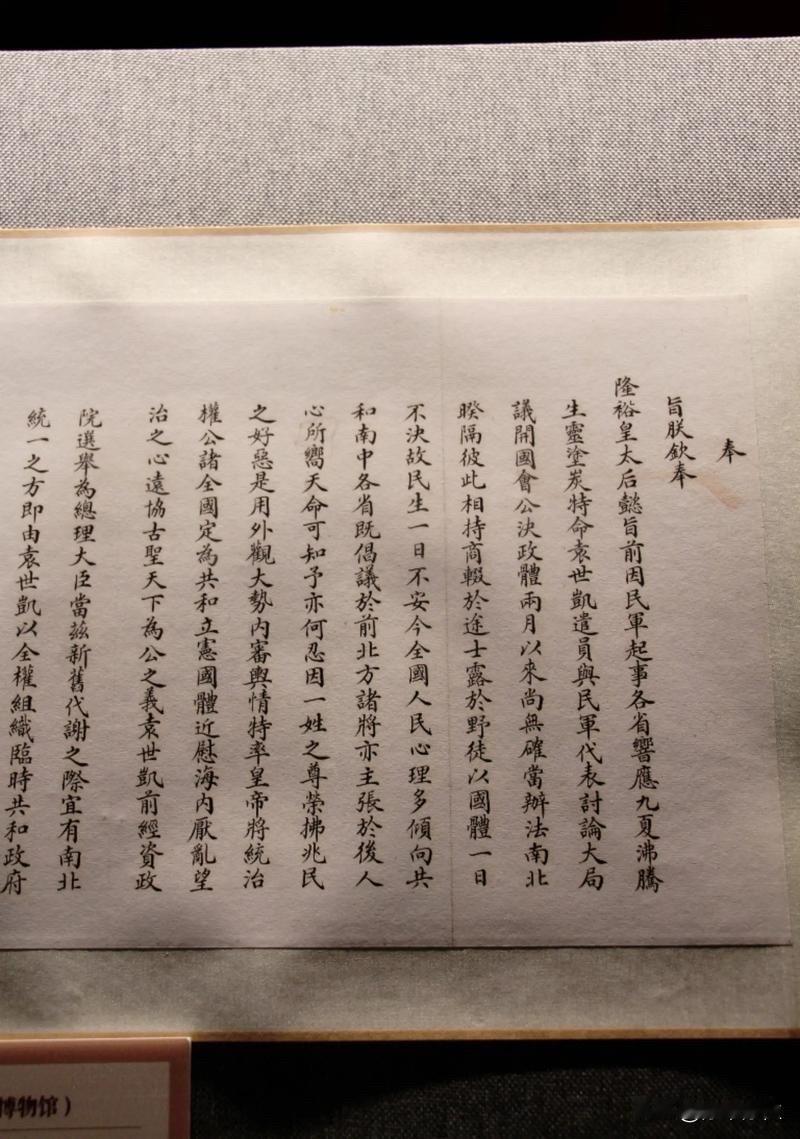 奉
旨朕欽奉
隆裕皇太后懿旨前因民軍起事各省響應九夏沸騰
生靈塗炭特命袁世凱遣員與民軍代表討論大局
議開國會公決政體兩月以來尚無確當辦法南北
暌隔彼此相持商輟於途士露於野徒以國體一日
不決故民生一日不安今全國人民心理多傾向共
和南中各省既倡議於前北方諸將亦主張於後人
心所嚮天命可知予亦何忍因一姓之尊榮拂兆民
之好惡是用外觀大勢內審輿情特率皇帝將統治
權公諸全國定為共和立憲國體近慰海內厭亂望
治之心遠協古聖天下為公之義袁世凱前經資政
院選舉為總理大臣當茲新舊代謝之際宜有南北
統一之方即由袁世凱以全權組織臨時共和政府
博物馆）